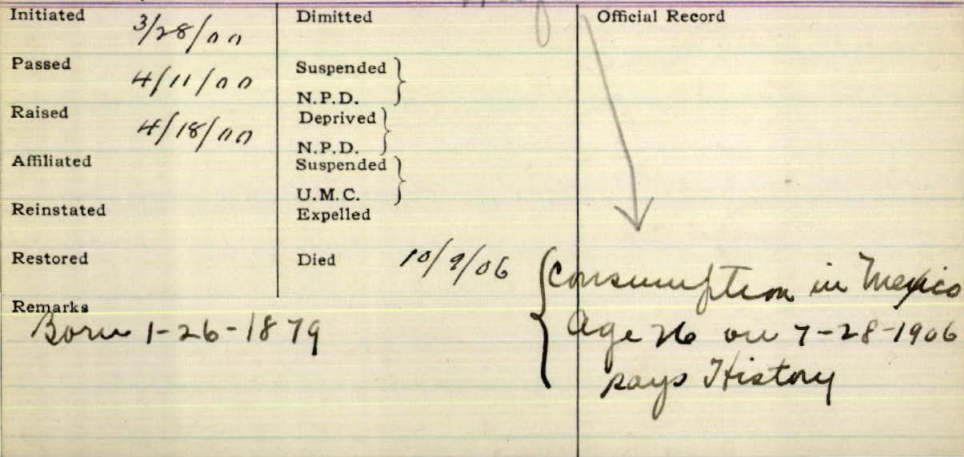 Initiated 3/28/00
Passed 4/11/00
Raised 4/18/00
Affiliated
Reinstated
Restored
Remarks
Born 1-26-1879
Dimitted
Suspended
N.P.D.
Deprived
N.P.D.
Suspended
U.M.C.
Expelled
Died 10/9/06
Official Record
Consumption in Mexico
Age 26 on 7-28-1906
says History